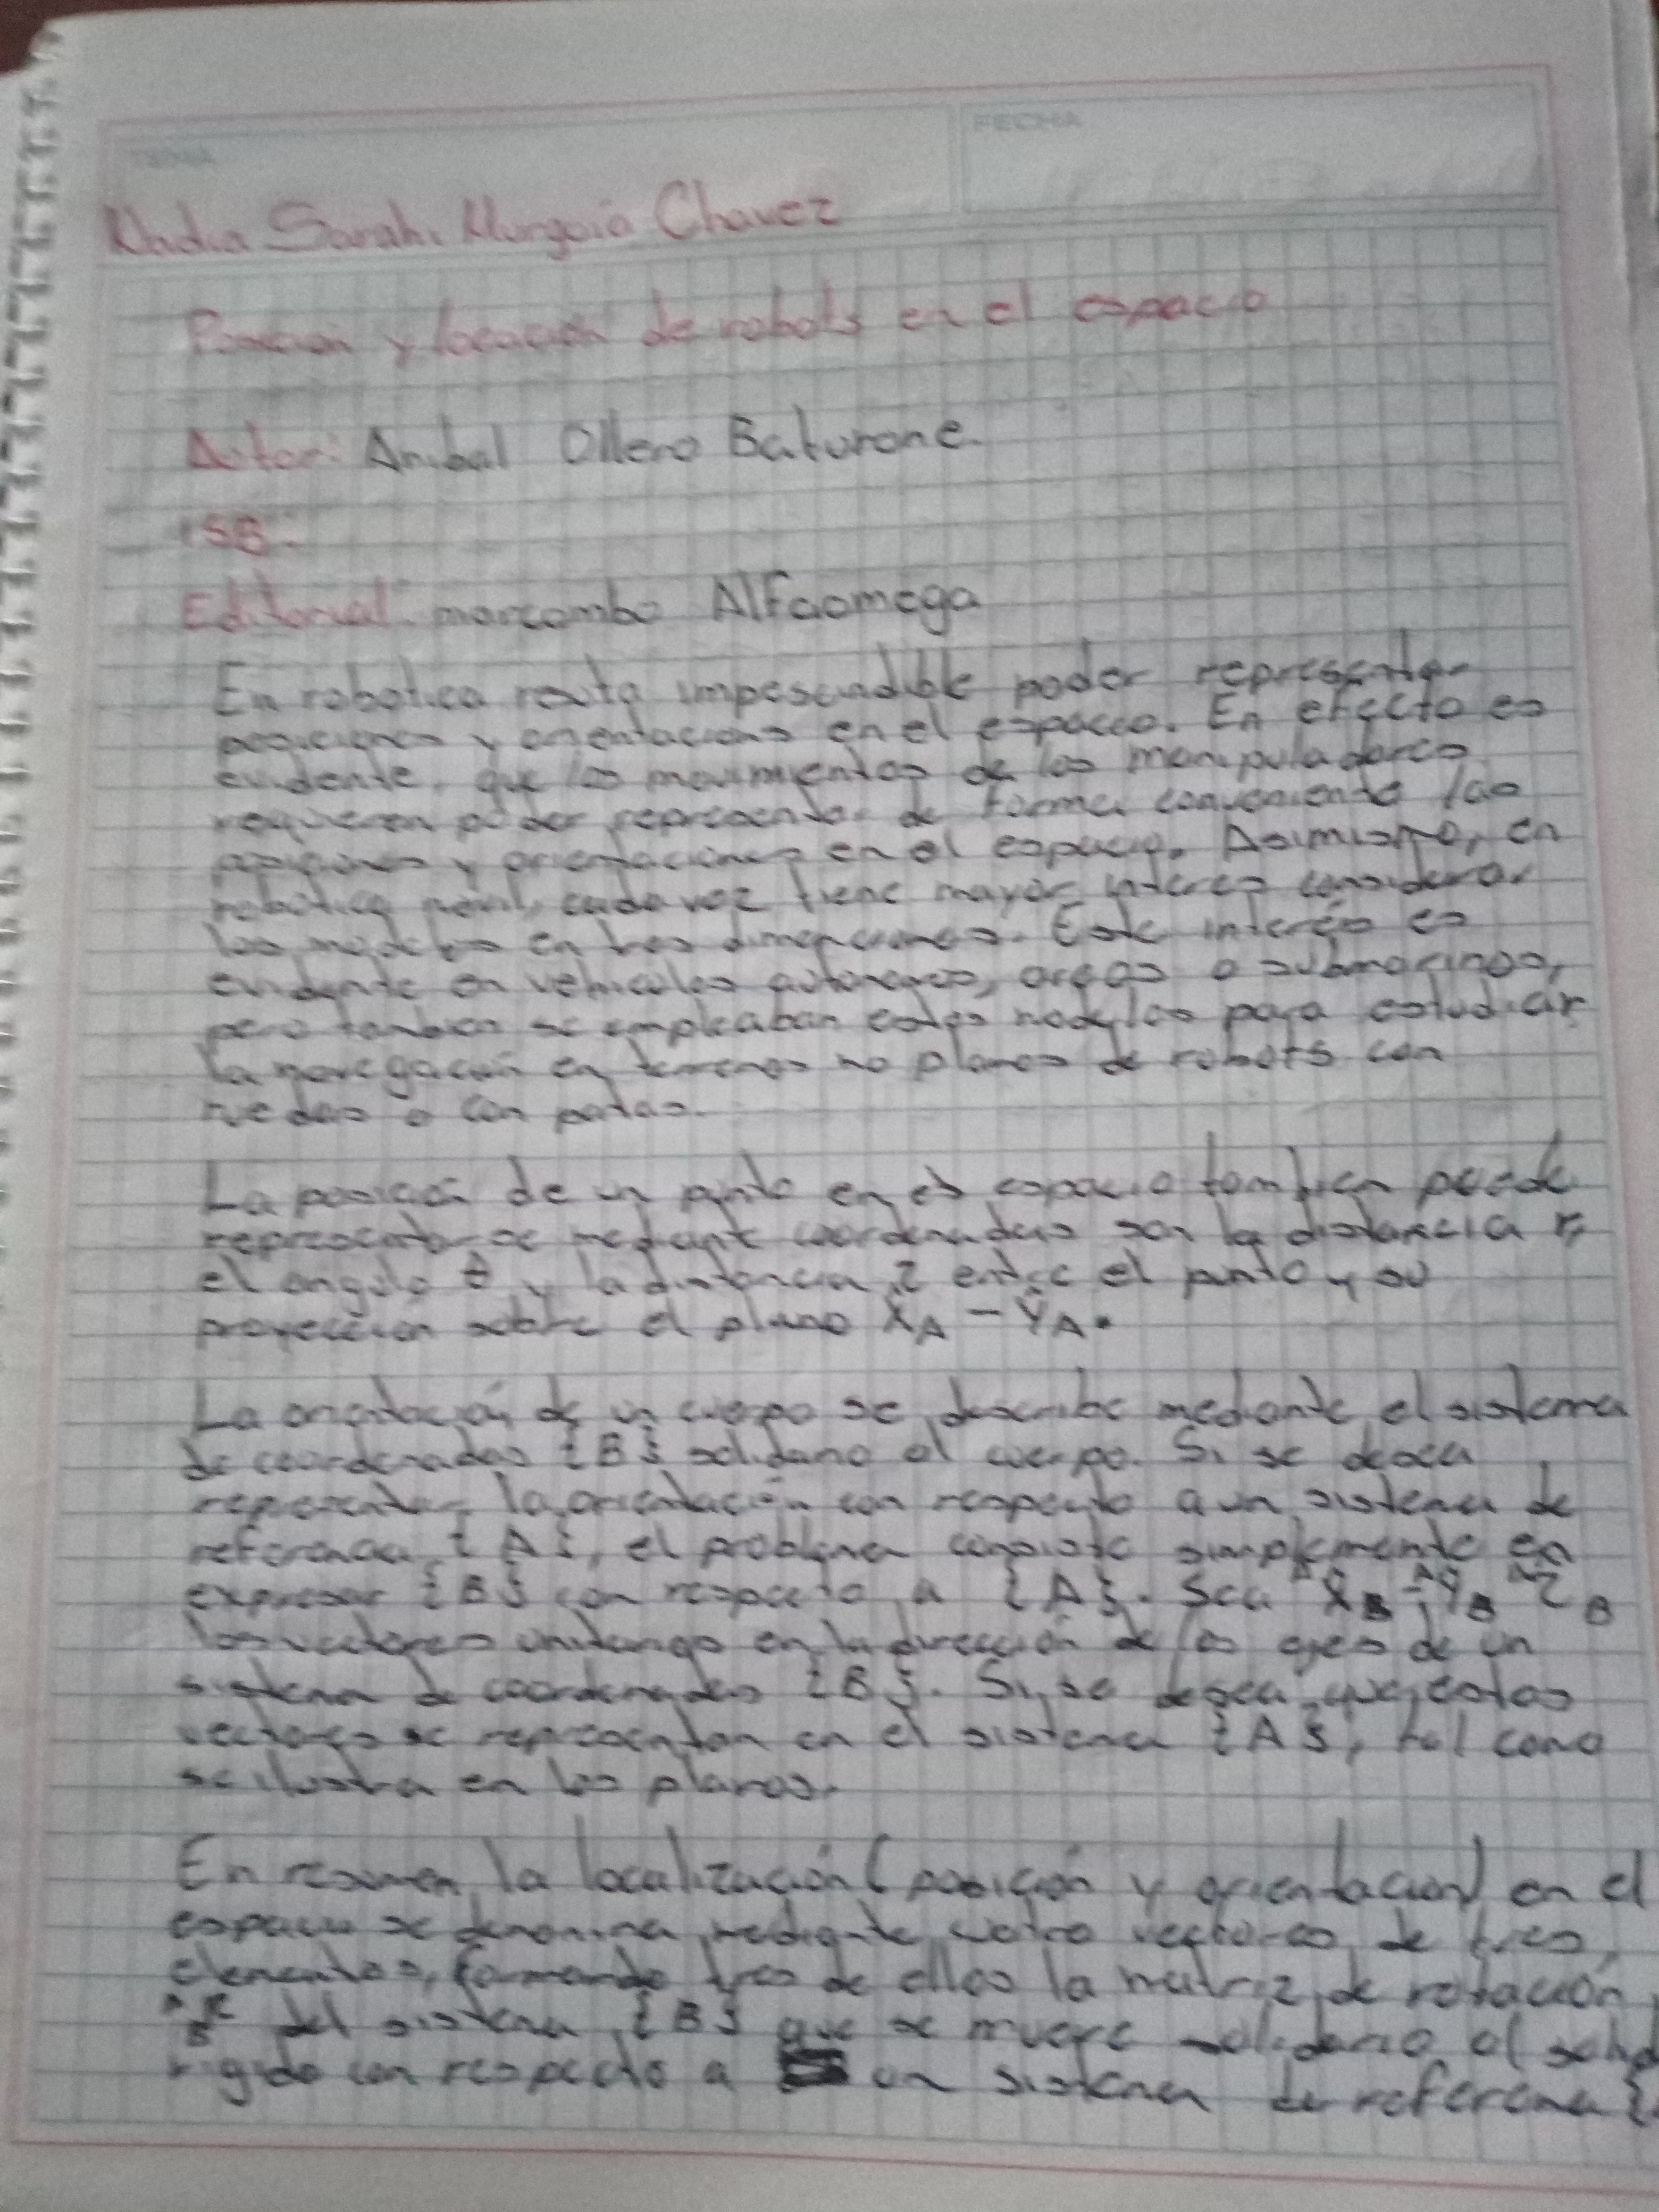 TEMA
FECHA
Nadia Sarahi Munguia Chavez
Posicion y locación de robots en el espacio
Autor: Anibal Ollero Baturone.
ISB:
Editorial: marcombo Alfaomega
En robotica resulta impescindible poder representar
posiciones y orientacions en el espacio. En efecto es
evidente, que los movimientos de los manipuladores
requieren poder representar de forma conveniente las
posiciones y orientaciones en el espacio. Asimismo, en
robotica movil, cada vez tiene mayor interes considerar
los modelos en tres dimenciones. Este interés es
evidente en vehiculos autonomos, areas o submarinos,
pero tambien se empleaban estos modelos para estudiar
la navegacion en terrenos no planos de robots con
ruedas o con patas.
La posición de un punto en el espacio tambien puede
representarse mediante coordenadas son la distancia r,
el angulo θ y la distancia z entre el punto y su
proyeccion sobre el plano X̂A - ŶA.
La orientación de un cuerpo se describe mediante el sistema
de coordenadas {B} solidario al cuerpo. Si se desea
representar la orientación con respecto a un sistema de
referencia {A}, el problema consiste simplemente en
expresar {B} con respecto a {A}. Sea ᴬX̂B, ᴬŶB ᴬẐB
los vectores unitarios en la dirección de los ejes de un
sistema de coordenadas {B}. Si se desea que estos
vectores se representan en el sistema {A}, tal como
se ilustra en los planos.
En resumen, la localización (posición y orientacion) en el
espacio se denomina mediante cuatro vectores de tres
elementos, formando tres de ellos la matriz de rotación
ᴬBR del sistema {B} que se mueve solidario al
rigido con respecto a un sistema de referencia {